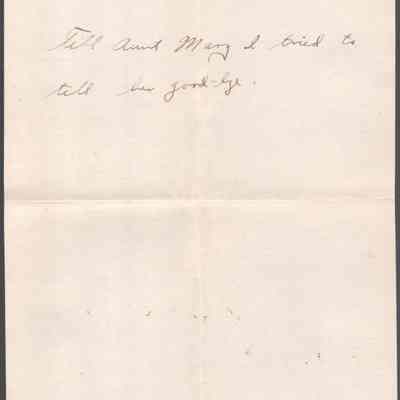 Tell Aunt Mary I tried to
tell her good-bye.